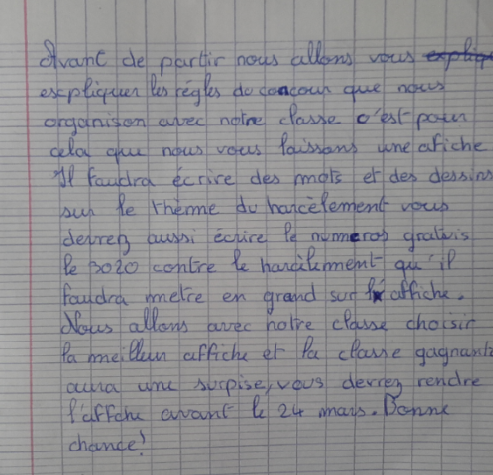 Avant de partir nous allons vous expliq
expliquer les régles du concour que nous
organison avec notre classe c'est pour
cela que nous vous laissons une afiche
Il faudra écrire des mots et des dessins
sur le thème du harcèlement vous
devrez aussi écrire le numeros gratuis
le 3020 contre le harcèlement qu'il
faudra metre en grand sur l'affiche.
Nous allons avec notre classe choisir
la meilleur affiche et la classe gagnante
aura une surpise, vous devrez rendre
l'affche avant le 24 mars. Bonne
chance!